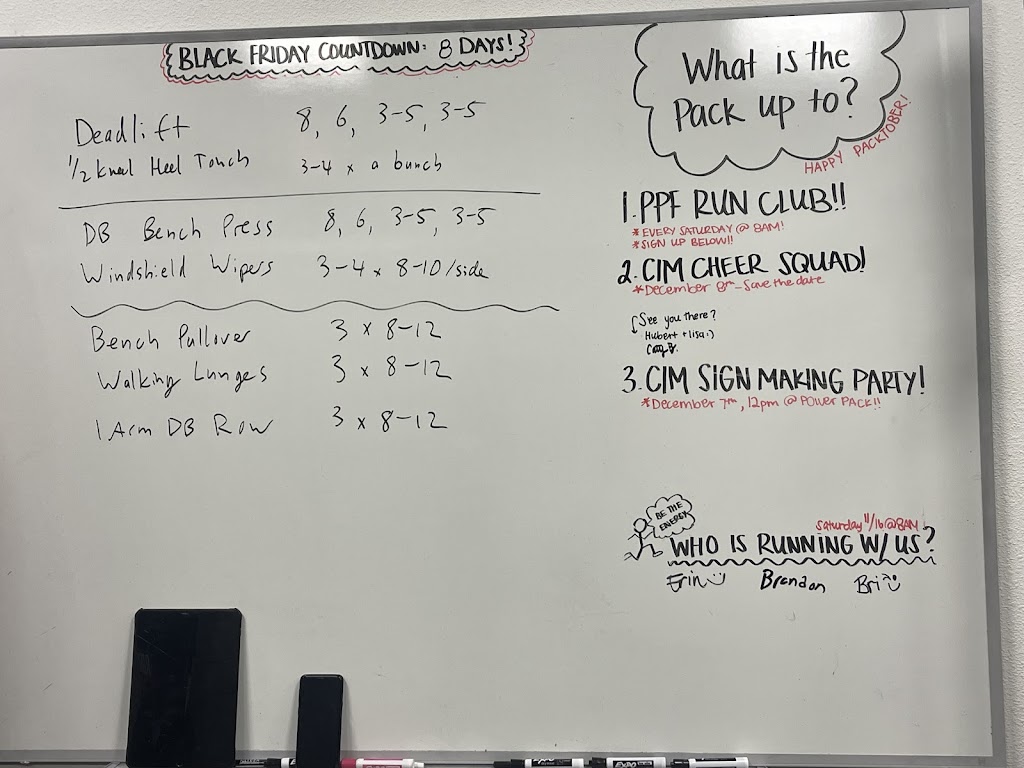 BLACK FRIDAY COUNTDOWN: 8 DAYS!
Deadlift 8, 6, 3-5, 3-5
1/2 Kneel Heel Touch 3-4 x a bunch
DB Bench Press 8, 6, 3-5, 3-5
Windshield Wipers 3-4 x 8-10/side
Bench Pullover 3 x 8-12
Walking Lunges 3 x 8-12
1 Arm DB Row 3 x 8-12
What is the
Pack up to?
HAPPY PACKTOBER!
1. PPF RUN CLUB!!
*EVERY SATURDAY @ 8AM!
*SIGN UP BELOW!!
2. CIM CHEER SQUAD!
*December 8th - Save the date
See you there?
Hubert + lisa :)
3. CIM SIGN MAKING PARTY!
*December 7th, 12pm @ POWER PACK!!
BE THE
ENERGY
Saturday 11/16 @ 8AM
WHO IS RUNNING W/ US?
Erin Brandon Bri
EXPO